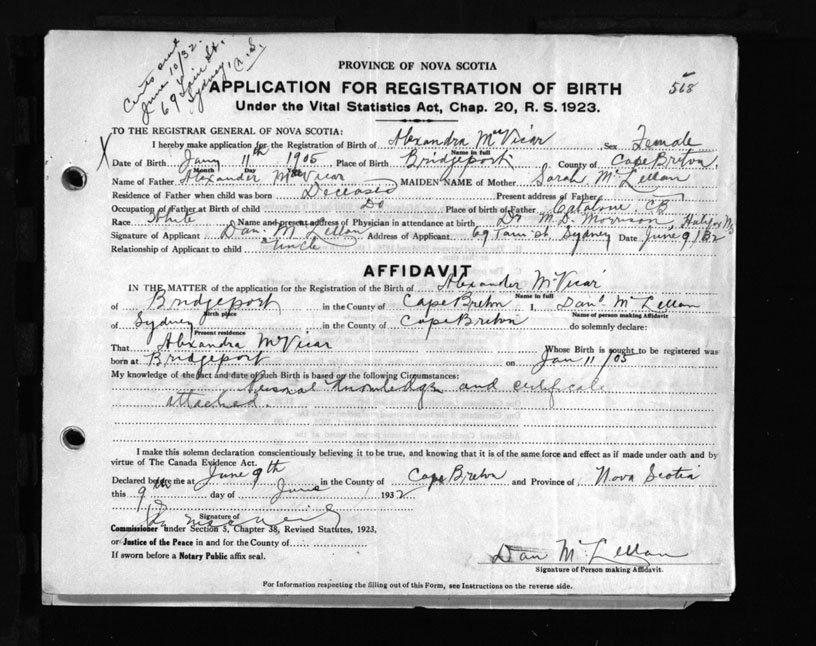 Certs sent
June 10/32.
Sydney, N.S.
568
PROVINCE OF NOVA SCOTIA
APPLICATION FOR REGISTRATION OF BIRTH
Under the Vital Statistics Act, Chap. 20, R. S. 1923.
TO THE REGISTRAR GENERAL OF NOVA SCOTIA:
I hereby make application for the Registration of Birth of Alexandra McVicar Sex Female
Name in full
X Date of Birth Jany 11th 1905 Place of Birth Bridgeport County of Cape Breton
Month Day
Name of Father Alexander McVicar MAIDEN NAME of Mother Sarah McLellan
Residence of Father when child was born Deceased Present address of Father
Occupation of Father at Birth of child Do Place of birth of Father Catalone, CB
Race White Name and present address of Physician in attendance at birth Dr M. D. Morrison, Halifax NS
Signature of Applicant Dan. McLellan Address of Applicant 69 Sydney Date June 9/32
Relationship of Applicant to child Uncle
AFFIDAVIT
IN THE MATTER of the application for the Registration of the Birth of Alexander McVicar
Name in full
of Bridgeport in the County of Cape Breton I, Danl McLellan
Birth place Name of person making Affidavit
of Sydney in the County of Cape Breton do solemnly declare:
Present residence
That Alexandra McVicar Whose Birth is sought to be registered was
born at Bridgeport on Jan 11/05
My knowledge of the fact and date of such Birth is based on the following Circumstances:
Personal knowledge and certificate
attached.
I make this solemn declaration conscientiously believing it to be true, and knowing that it is of the same force and effect as if made under oath and by
virtue of The Canada Evidence Act.
Declared before me at June 9th in the County of Cape Breton and Province of Nova Scotia
this 9th day of June 1932
Signature of
Commissioner under Section 5, Chapter 38, Revised Statutes, 1923,
or Justice of the Peace in and for the County of
If sworn before a Notary Public affix seal.
Dan McLellan
Signature of Person making Affidavit.
For Information respecting the filling out of this Form, see Instructions on the reverse side.